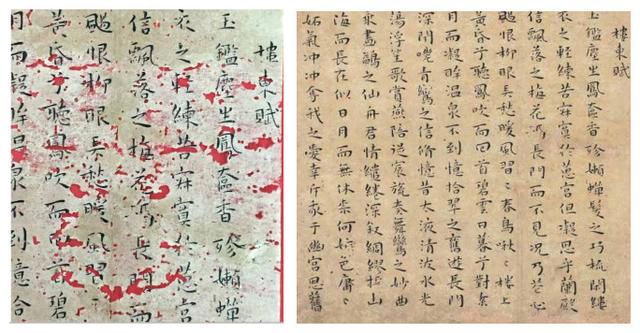 樓東賦
玉鑑塵生鳳奩香殄嬾蟬
衣之輕練苦寂寞於蕙宮
信飄落之梅花隔長門而
颺恨柳眼弄愁暖風習〻
黃昏兮聽鳳吹而回首碧
月而凝眸溫泉不到憶拾
樓東賦
玉鑑塵生鳳奩香殄嬾蟬鬢之巧梳閒縷
衣之輕練苦寂寞於蕙宮但凝思乎蘭殿
信飄落之梅花隔長門而不見況乃花心
颺恨柳眼弄愁暖風習〻春鳥啾〻樓上
黃昏兮聽鳳吹而回首碧雲日暮兮對素
月而凝眸溫泉不到憶拾翠之舊遊長門
深閉嗟青鸞之信修憶昔太液清波水光
蕩浮笙歌賞燕陪從宸旒奏舞鸞之妙曲
乘畫鷁之仙舟君情繾綣深敘綢繆誓山
海而長在似日月而無休奈何嫉色庸〻
妬氣沖沖奪我之愛幸斥我于幽宮思舊